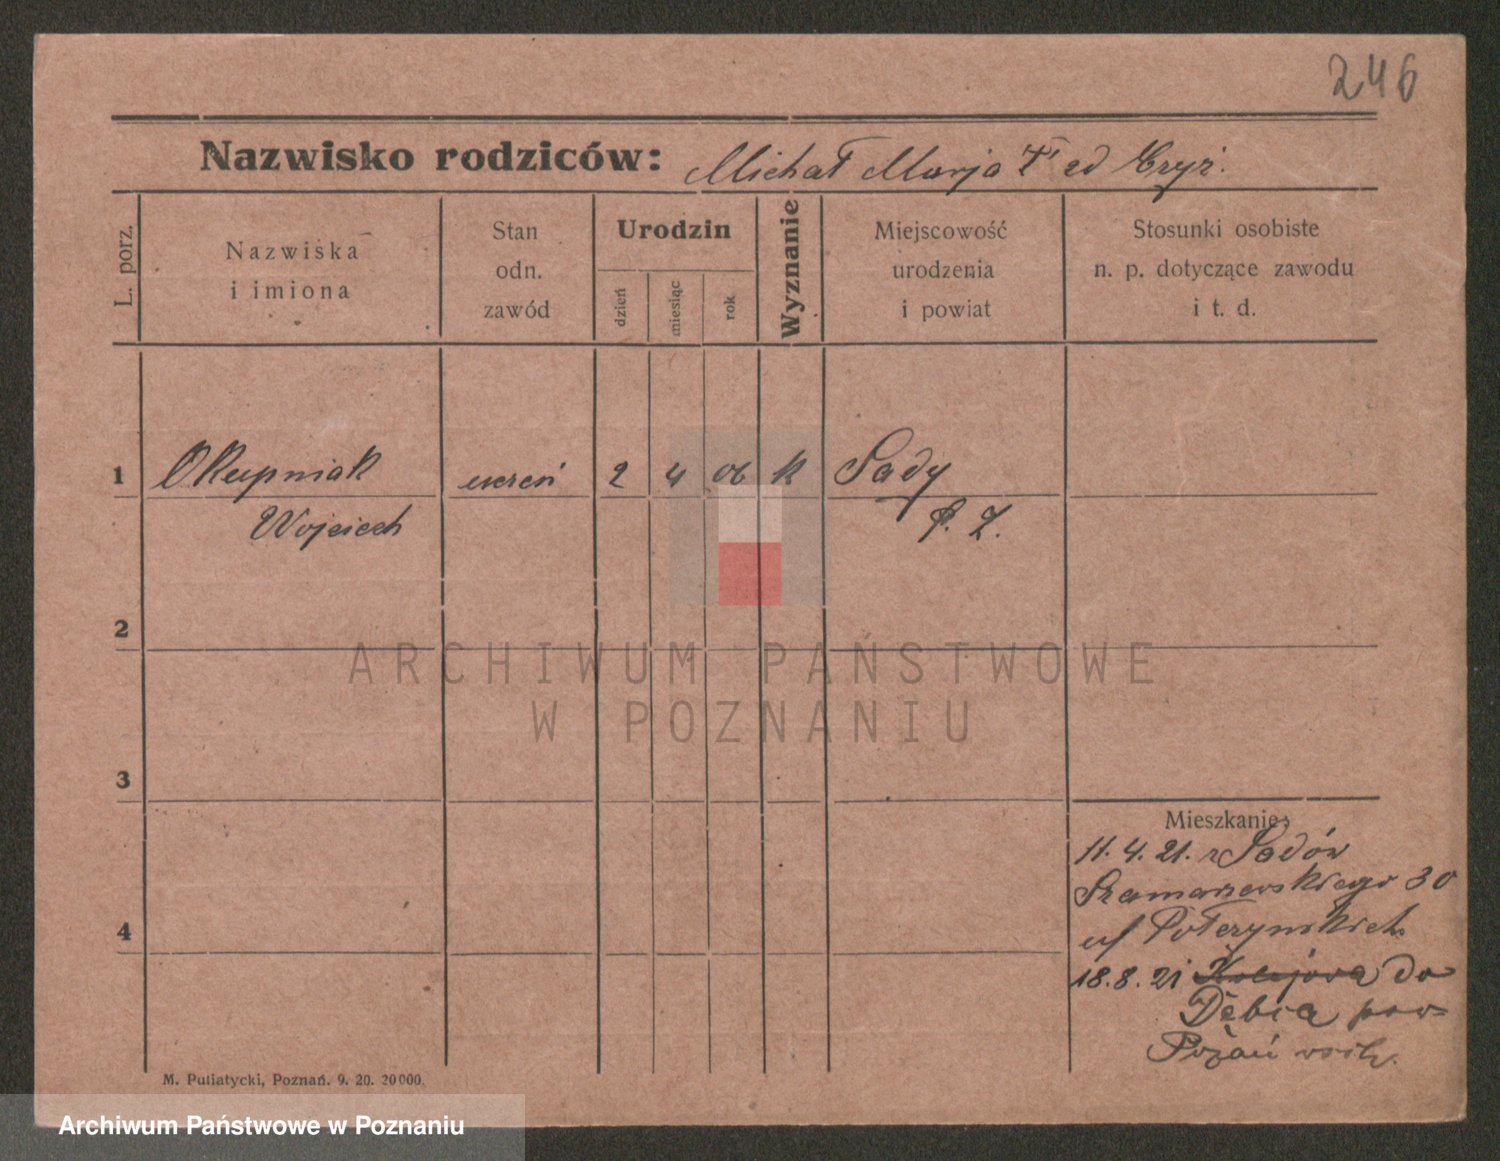 246
Nazwisko rodziców: Michał Marja
L. porz.
Nazwiska
i imiona
Stan
odn.
zawód
Urodzin
dzień
miesiąc
rok
Wyznanie
Miejscowość
urodzenia
i powiat
Stosunki osobiste
n. p. dotyczące zawodu
i t. d.
1 Skupniak uczeń 2 4 06 k Sady
Wojciech P. Z.
2
3
4
ARCHIWUM PAŃSTWOWE
W POZNANIU
Mieszkanie:
11.4.21. z Sadów
Szamarzewskiego 30
18.8.21 do
Dębca pow
Poznań
M. Putiatycki, Poznań. 9. 20. 20000.
Archiwum Państwowe w Poznaniu